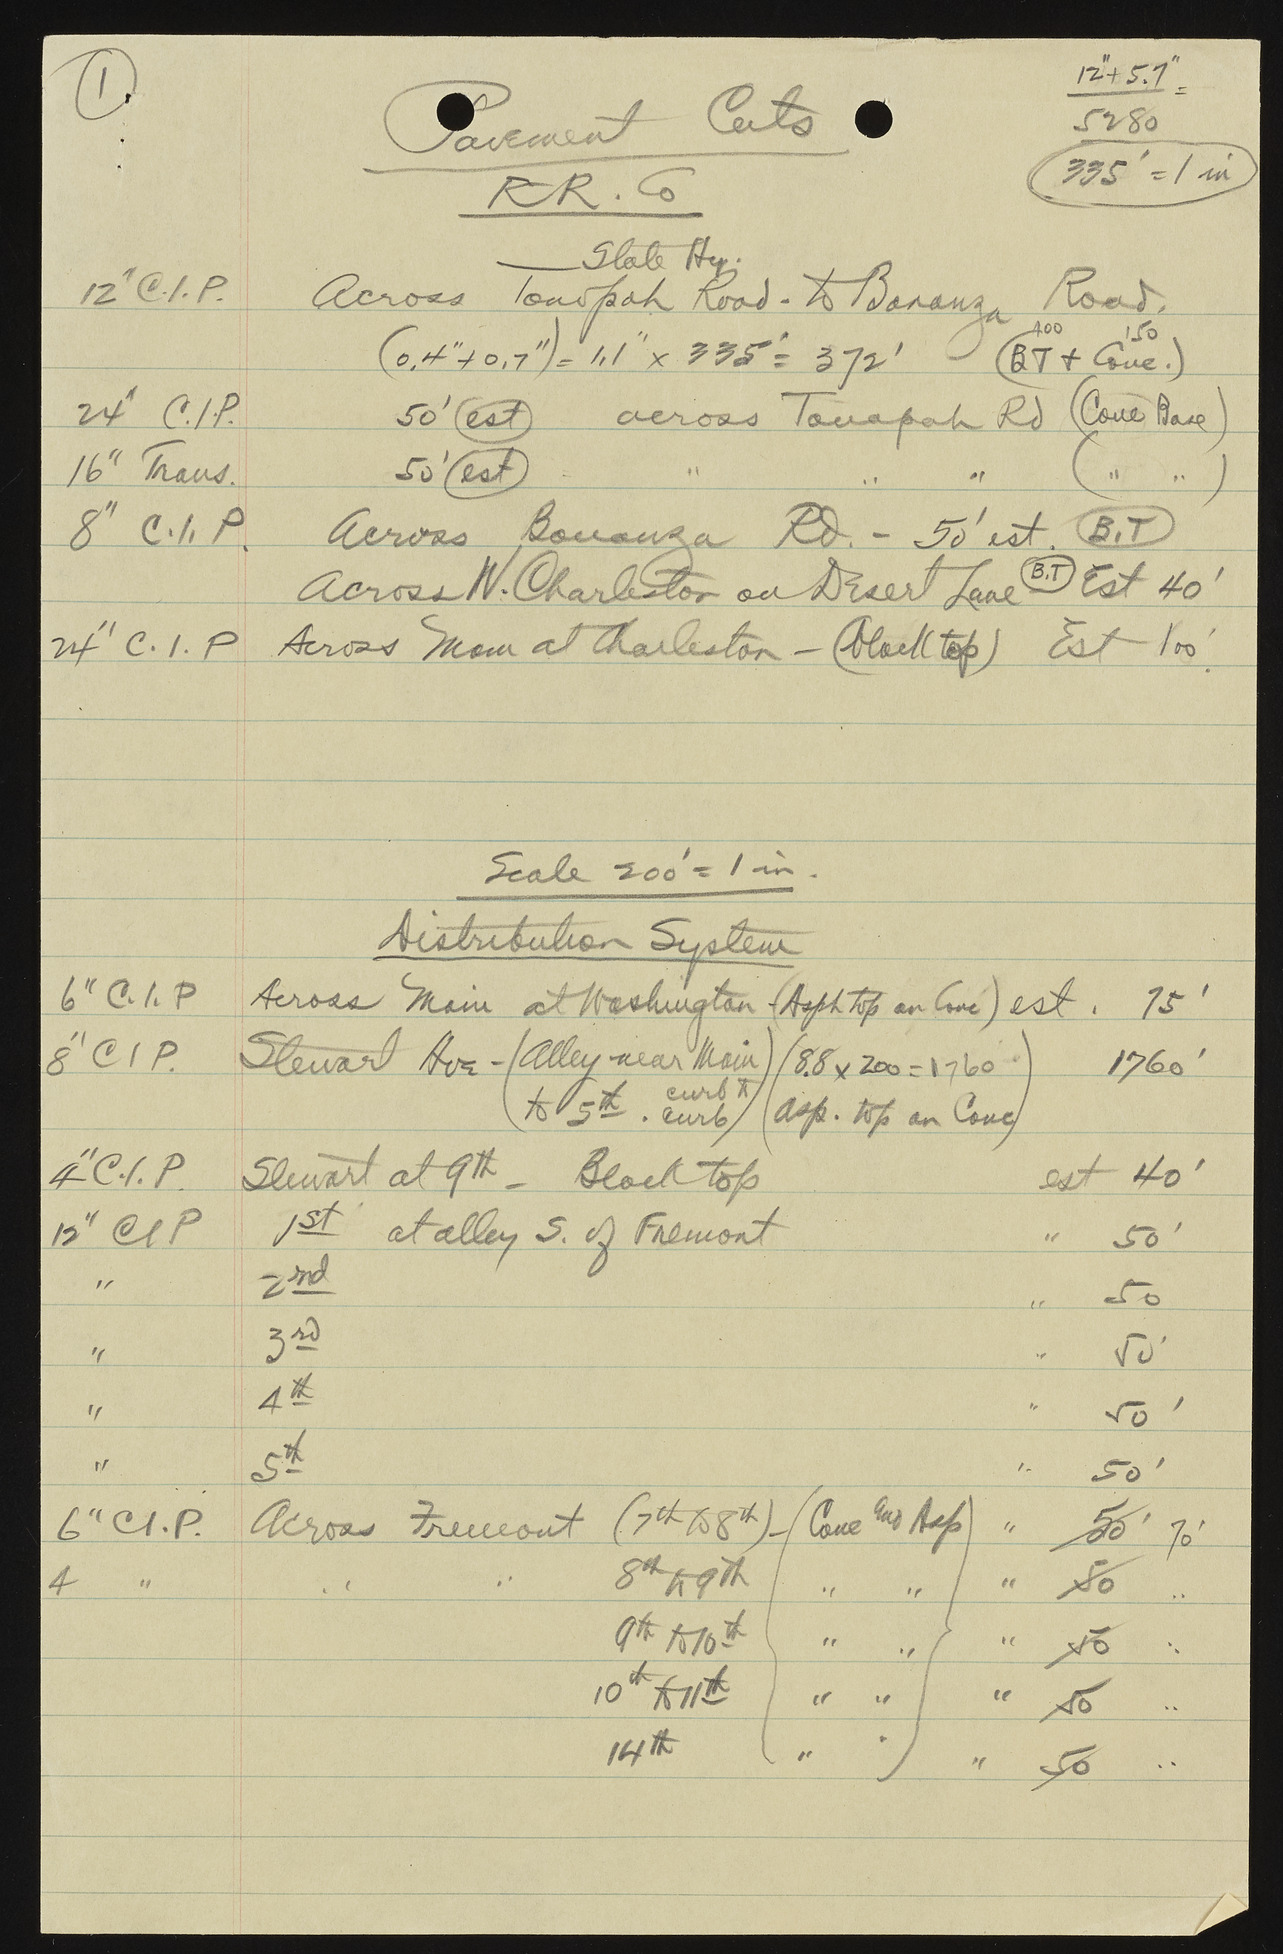 1
12" + 5.7" =
5280
335' = 1 in
Pavement Cuts
R.R. Co
State Hy.
12" C.I.P. Across Tonopah Road - to Bonanza Road.
(0.4" + 0.7") = 1.1" x 335' = 372' (BT + Conc.) 400 150
24" C.I.P. 50' (est) across Tonopah Rd (Conc Base)
16" Trans. 50' (est) " " " ( " " )
8" C.I.P. Across Bonanza Rd. - 50' est. B.T
Across W. Charleston on Desert Lane B.T Est 40'
24" C.I.P Across Main at Charleston - (black top) Est 100'.
Scale 200' = 1 in.
Distribution System
6" C.I.P Across Main at Washington - (Asph top on Conc) est. 75'
8" C I P. Stewart Ave - (Alley near Main) (8.8 x 200 = 1760') 1760'
to 5th. curb to curb) (Asp. top on Conc)
4" C.I.P. Stewart at 9th - Black top est 40'
12" C I P 1st at alley S. of Fremont " 50'
" 2nd " 50
" 3rd " 50'
" 4th " 50'
" 5th " 50'
6" C I.P. Across Fremont (7th to 8th) - (Conc and Asp) " 50' 70'
4 " " " 8th to 9th " " " 50 "
9th to 10th " " " 50 "
10th to 11th " " " 50 "
14th " " " 50 "